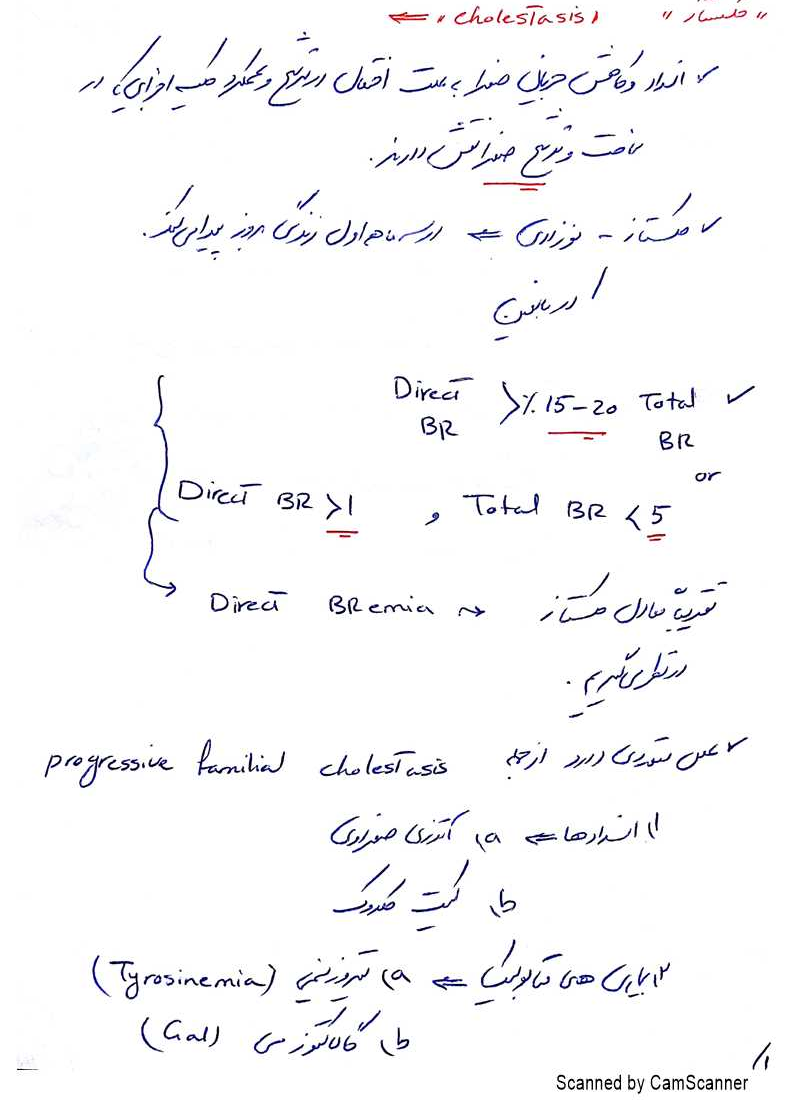 "کلستاز" "cholestasis" ⇐
✓ انسداد و کاهش جریان صفرا به علت اختلال در ترشح و عملکرد کلیه اجزایی که در
ساخت و ترشح صفرا نقش دارند.
✓ کلستاز - نوزادی ⇐ در سه ماهه اول زندگی بروز پیدا می‌کند.
/ در بالغین
✓ Direct BR > ٪ 15-20 Total BR
or
Direct BR > 1 , Total BR < 5
Direct BRemia ~> تقریباً معادل کلستاز
در نظر می‌گیریم.
✓ علل متعددی دارد از جمله progressive familial cholestasis
۱) انسدادها ⇐ a) آترزی صفراوی
b) کیست کلدوک
۲) بیماری های متابولیک ⇐ a) تیروزینمی (Tyrosinemia)
b) گالاکتوزمی (Gal)
۱/
Scanned by CamScanner